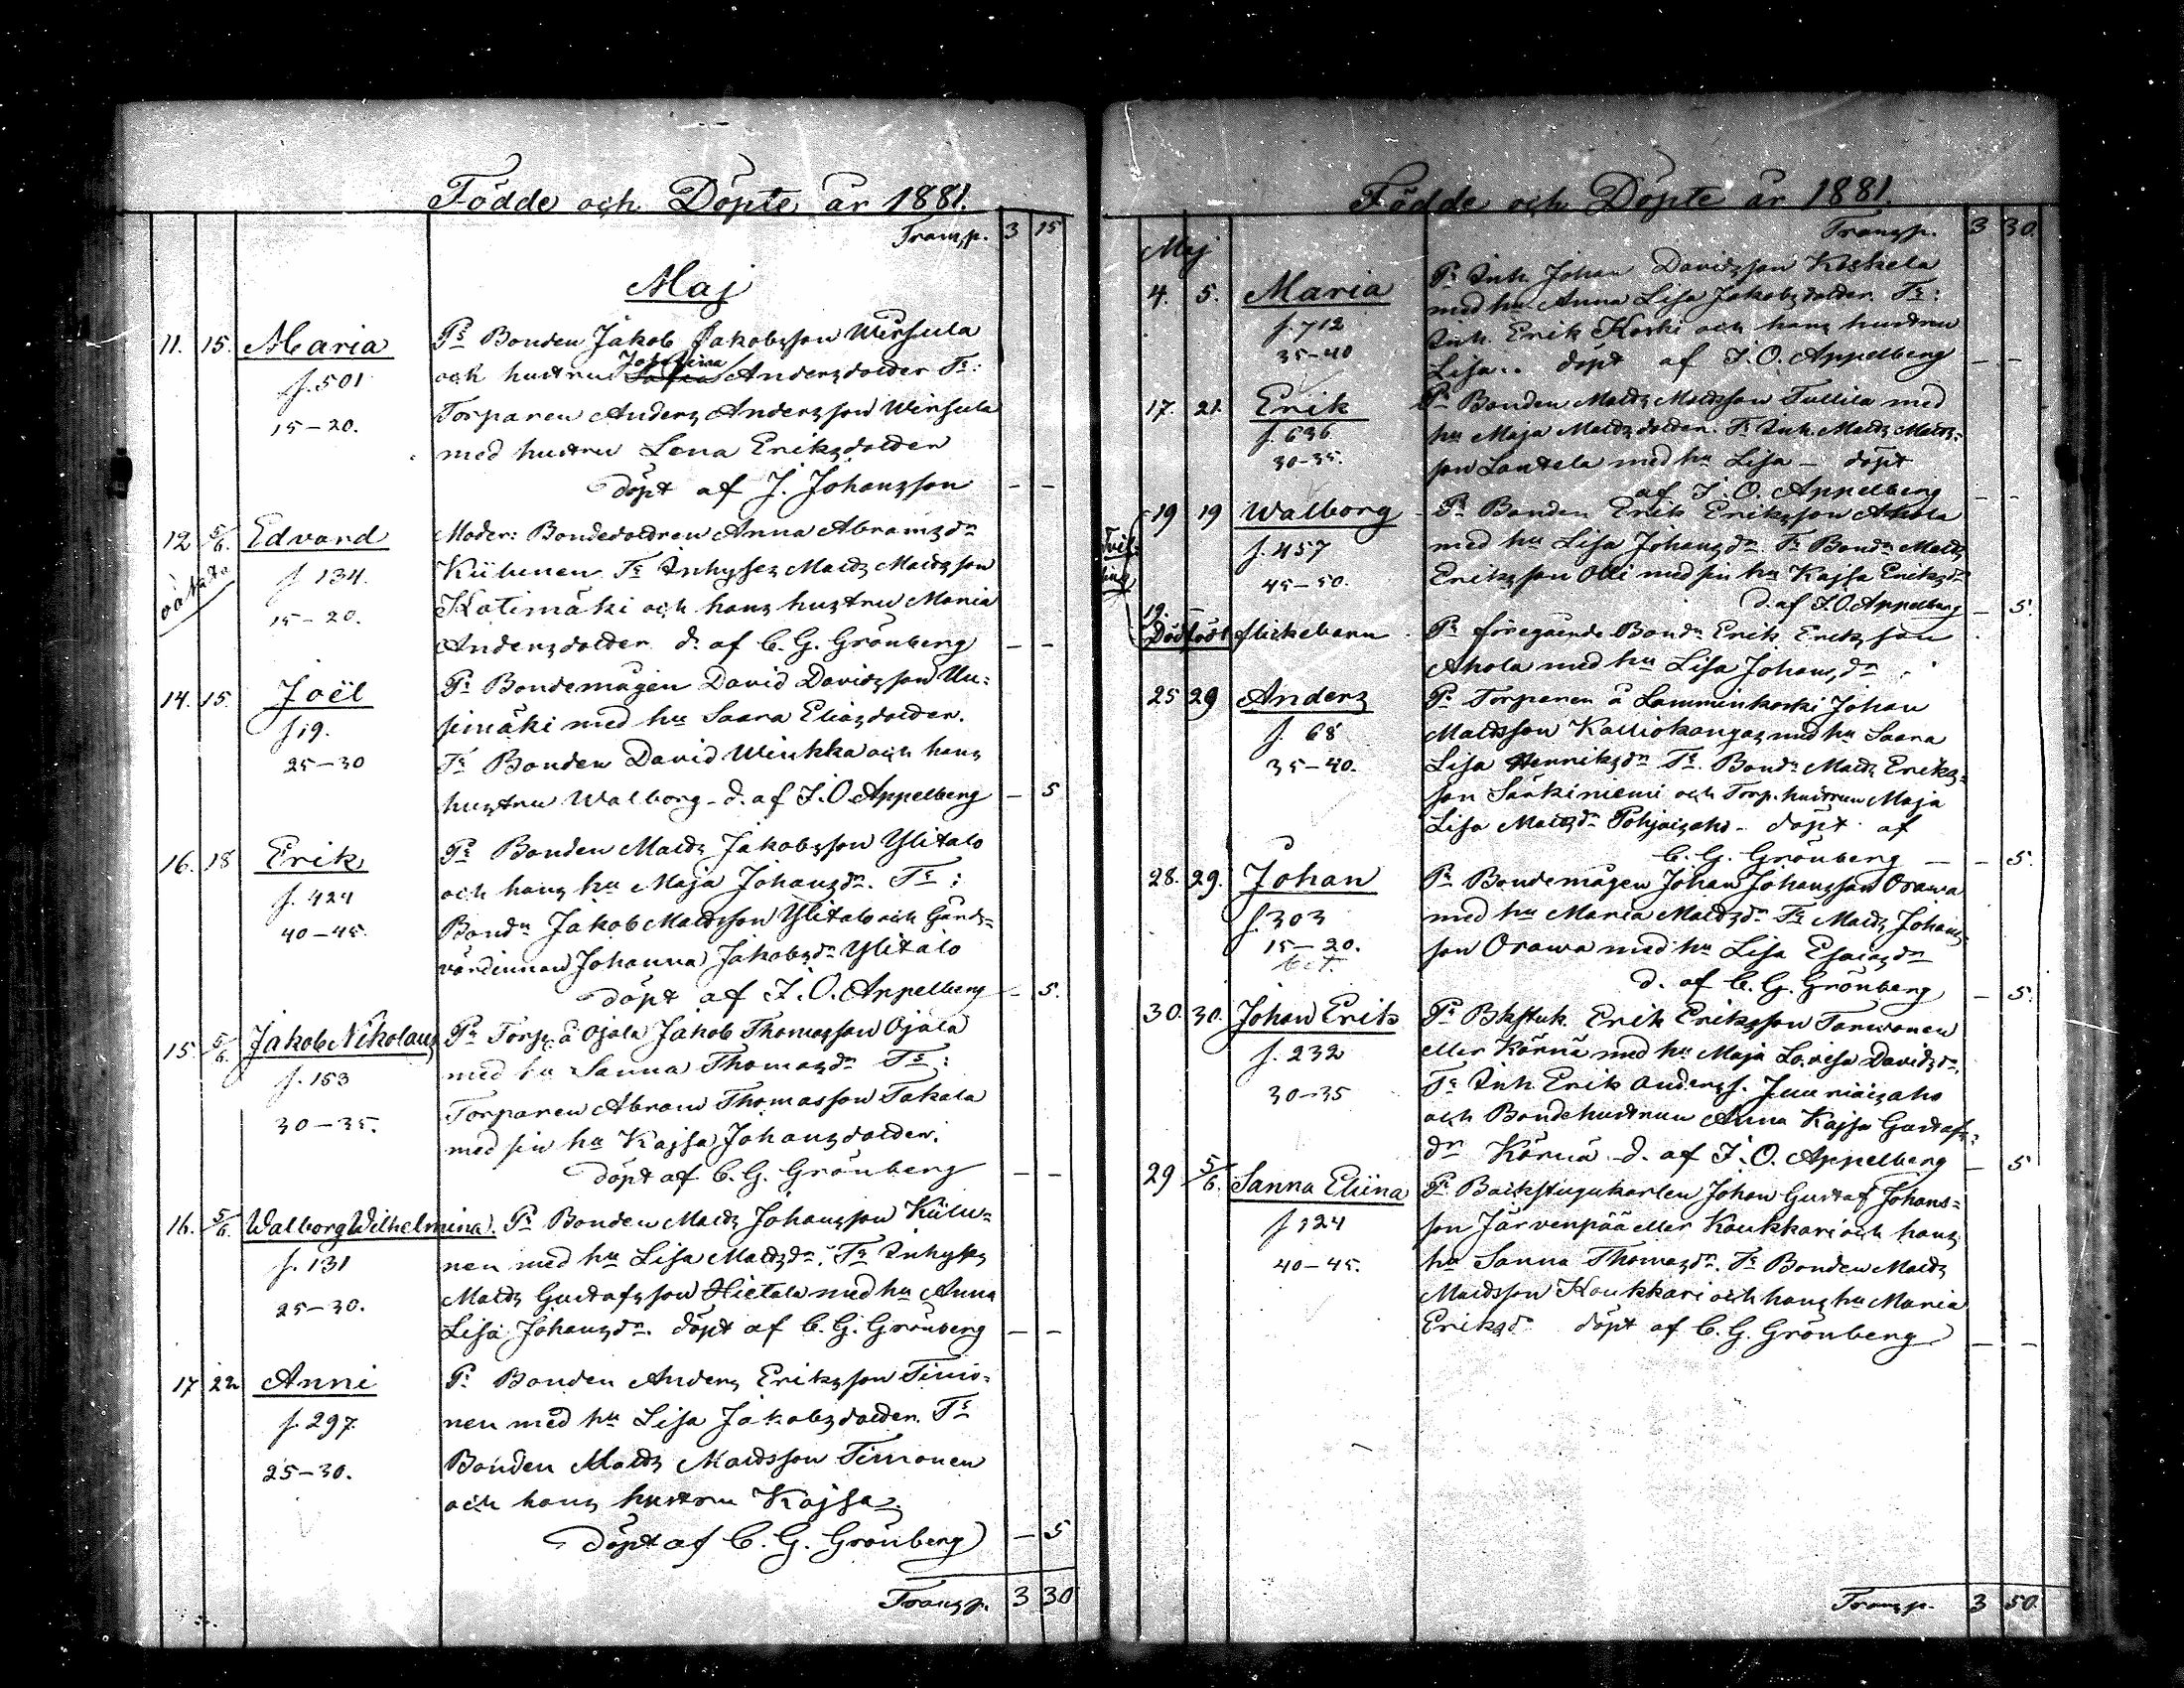 Födde och Döpte år 1881.
Transp. 3 15
Maj
11. 15. Maria Pr Bonden Jakob Jakobsson Wirsula
f. 501 och hustru Josefina Andersdotter Tr:
15-20. Torparen Anders Andersson Wirsula
med hustru Lena Eriksdotter
döpt af J. Johansson — —
12 5/6. Edvard Moder: Bondedottren Anna Abramsdr
oäkta f 134. Kiilunen Tr Inhyses Matts Mattsson
15-20. Katimäki och hans hustru Maria
Andersdotter d. af C. G. Grönberg — —
14. 15. Joël Pr Bondemågen David Davidsson Uu-
f 19. simäki med hu Saara Eliasdotter.
25-30 Tr Bonden David Winkka och hans
hustru Walborg - d. af J. O. Appelberg — 5
16. 18 Erik Pr Bonden Matts Jakobsson Ylitalo
f. 424 och hans hu Maja Johansdr. Tr:
40-45. Bondn Jakob Mattsson Ylitalo och Gårds-
värdinnan Johanna Jakobsdr Ylitalo
döpt af J. O. Appelberg — 5.
15. 5/6. Jakob Nikolaus Pr Torp. å Ojala Jakob Thomasson Ojala
f. 153 med hu Sanna Thomasdr Tr:
30-35. Torparen Abram Thomasson Takala
med sin hu Kajsa Johansdotter.
döpt af C. G. Grönberg — —
16. 5/6. Walborg Wilhelmina. Pr Bonden Matts Johansson Kiilu-
f. 131 nen med hu Lisa Mattsdr. Tr Inhyses
25-30. Matts Gustafsson Hietala med hu Anna
Lisa Johansdr. döpt af C. G. Grönberg — —
17 22 Anni Pr Bonden Anders Eriksson Timo-
f. 297. nen med hu Lisa Jakobsdotter. Tr
25-30. Bonden Matts Mattsson Timonen
och hans hustru Kajsa.
döpt af C. G. Grönberg — 5
Transp. 3 30
Födde och Döpte år 1881.
Transp. 3 30.
Maj
4. 5. Maria Pr Inh. Johan Davidsson Koskela
med hu Anna Lisa Jakobsdotter. Tr:
f. 712 Inh. Erik Koski och hans hustru
35-40 Lisa.. döpt af J. O. Appelberg — —
17. 21. Erik Pr Bonden Matts Mattsson Tullila med
f. 636. hu Maja Mattsdotter. Tr Inh. Matts Matts-
30-35. son Lantela med hu Lisa — döpt
af J. O. Appelberg — —
19 19 Walborg Pr Bonden Erik Eriksson Ahola
f. 457 med hu Lisa Johansdr. Tr Bondn Matts
45-50. Eriksson Olli med sin hu Kajsa Eriksdr
d. af J. O. Appelberg — 5.
19.
Dödfödt flickebarn. Pr föregående Bondn Erik Eriksson
Ahola med hu Lisa Johansdr
25 29 Anders Pr Torparen å Lamminkoski Johan
f. 68 Mattsson Kalliokangas med hu Saara
35-40. Lisa Henriksdr Tr. Bondn Matts Eriks-
son Särkiniemi och Torp. hustrun Maja
Lisa Mattsdr Pohjaisaho - döpt af
C. G. Grönberg — — 5.
28. 29. Johan Pr Bondemågen Johan Johansson Orawa
f. 303 med hu Maria Mattsdr Tr Matts Johans-
15-20. son Orawa med hu Lisa Esaiasdr
d. af C. G. Grönberg — 5.
30. 30. Johan Erik Pr Bkstuk. Erik Eriksson Tarwonen
f. 232 eller Körnä med hu Maja Lovisa Davidsdr.
30-35 Tr Inh. Erik Anderss. Juuriaisaho
och Bondehustrun Anna Kajsa Gustafs-
dr Körnä d. af J. O. Appelberg — 5
29 5/6. Sanna Eliina Pr Backstugukarlen Johan Gustaf Johans-
f 124 son Järvenpää eller Koukkari och hans
40-45. hu Sanna Thomasdr. Tr Bonden Matts
Mattsson Koukkari och hans hu Maria
Eriksdr döpt af C. G. Grönberg — —
Transp. 3 50.